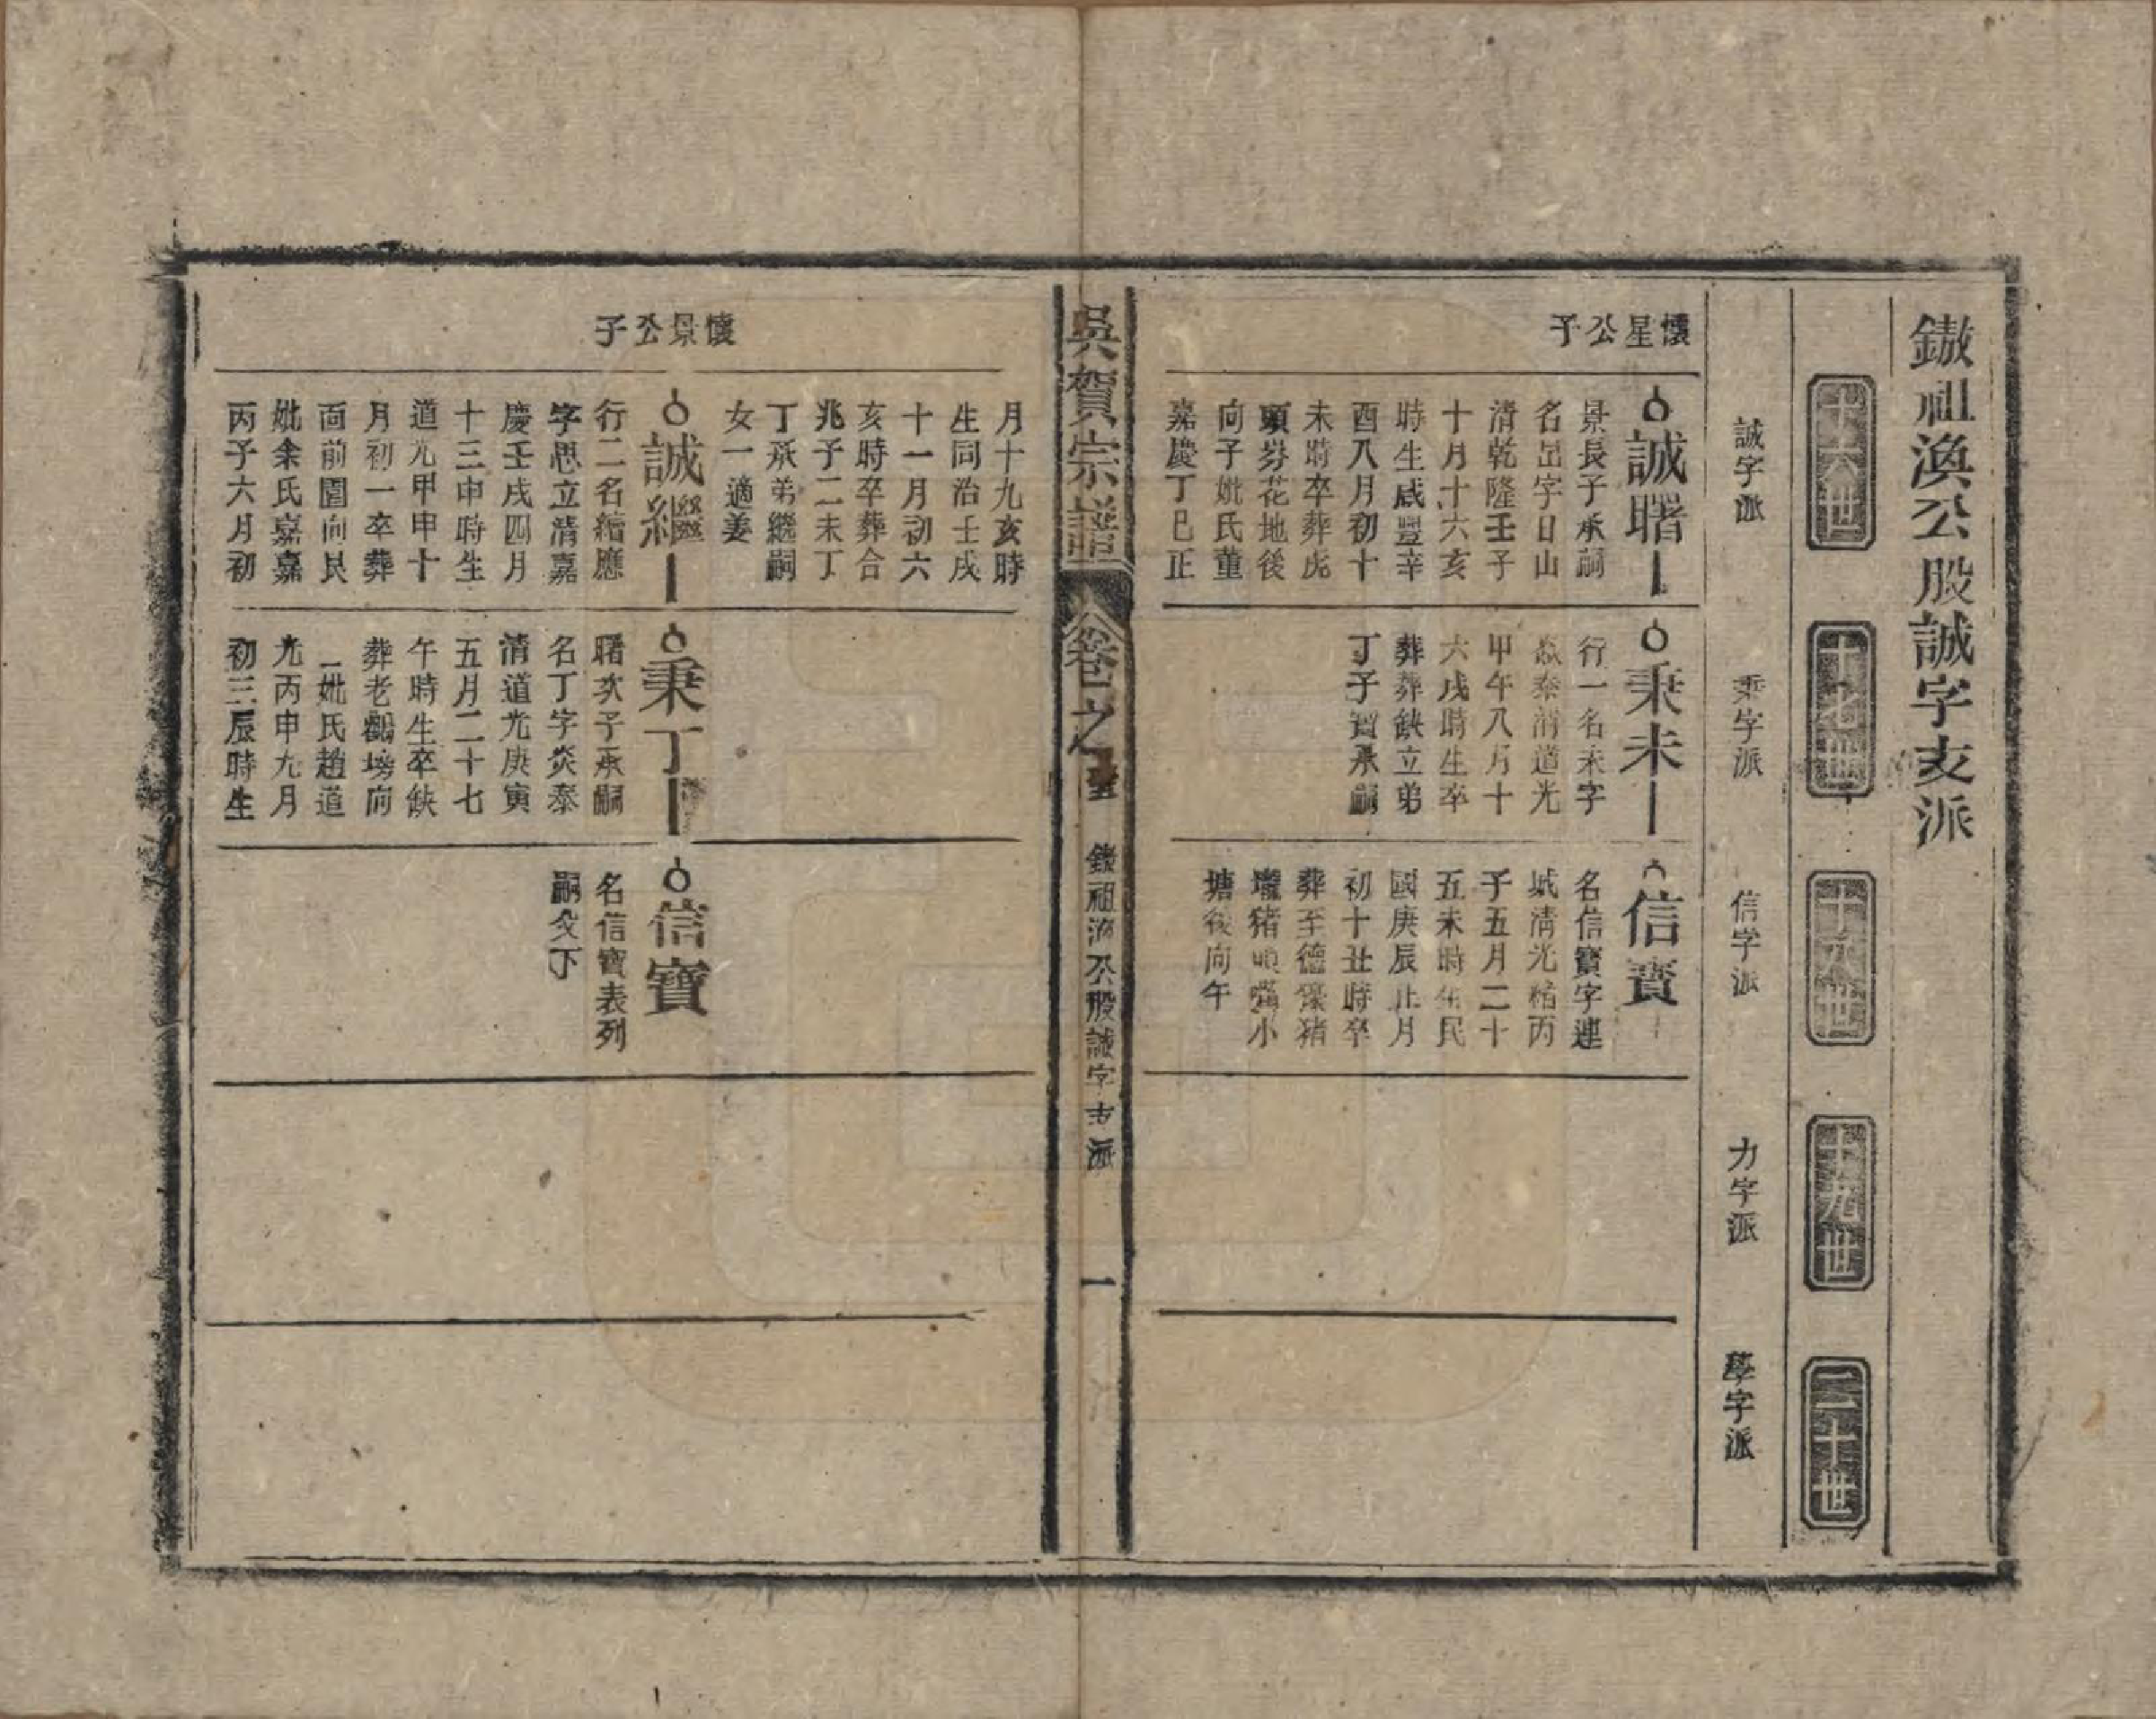 鏾祖渙公股誠字支派
十六世
十七世
十八世
十九世
二十世
誠字派
秉字派
信字派
力字派
學字派
懷星公子
誠曙
景長子承嗣
名昷字日山
清乾隆壬子
十月十六亥
時生咸豐辛
酉八月初十
未時卒葬虎
頭券花地後
向子妣氏董
嘉慶丁巳正
秉未
行一名未字
焱泰清道光
甲午八月十
六戌時生卒
葬葬缺立弟
丁子寶承嗣
信寶
名信寶字連
城清光緒丙
子五月二十
五未時生民
國庚辰正月
初十丑時卒
葬至德豪猪
壠猪頭嘴小
塘後向午
吳賀宗譜
卷之
祖渙公股誠字支派
一
月十九亥時
生同治壬戌
十一月初六
亥時卒葬合
兆子二未丁
丁承弟繼嗣
女一適姜
懷景公子
誠繼
行二名繪應
字思立清嘉
慶壬戌四月
十三申時生
道光甲申十
月初一卒葬
面前園向艮
妣余氏嘉嘉
丙子六月初
秉丁
曙次子承嗣
名丁字炎泰
清道光庚寅
五月二十七
午時生卒缺
葬老鸛塝向
一妣氏趙道
光丙申九月
初三辰時生
信寶
名信寶表列
嗣父下